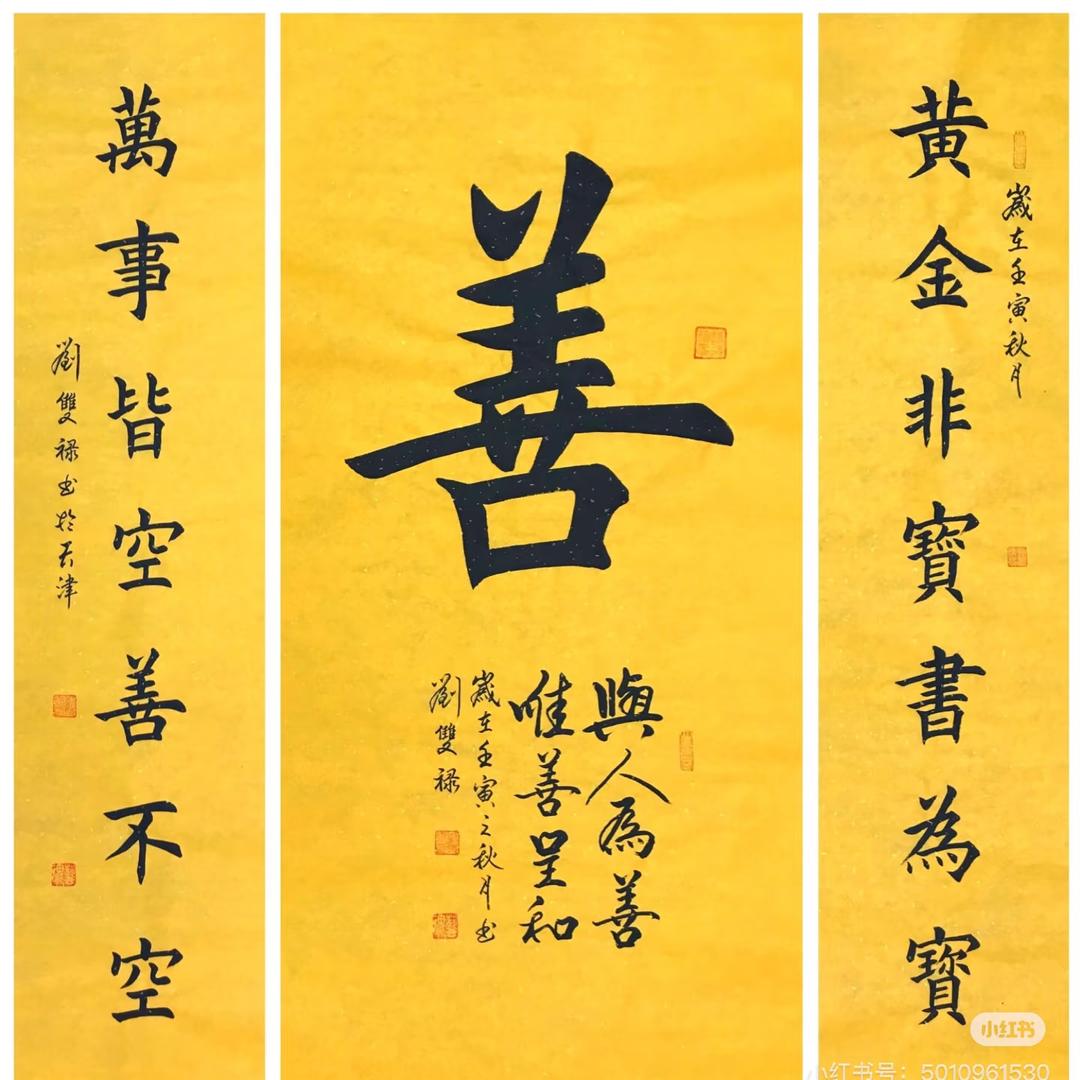 黄金非寶書為寶
歲在壬寅秋月
善
與人為善
唯善呈和
歲在壬寅之秋月书
劉雙禄
萬事皆空善不空
劉雙禄书於天津
小红书
小红书号：5010961530